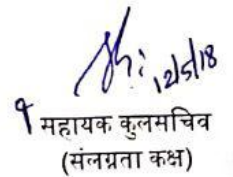 12/5/18
महायक कुलमचिव
(संलग्रता कक्ष)